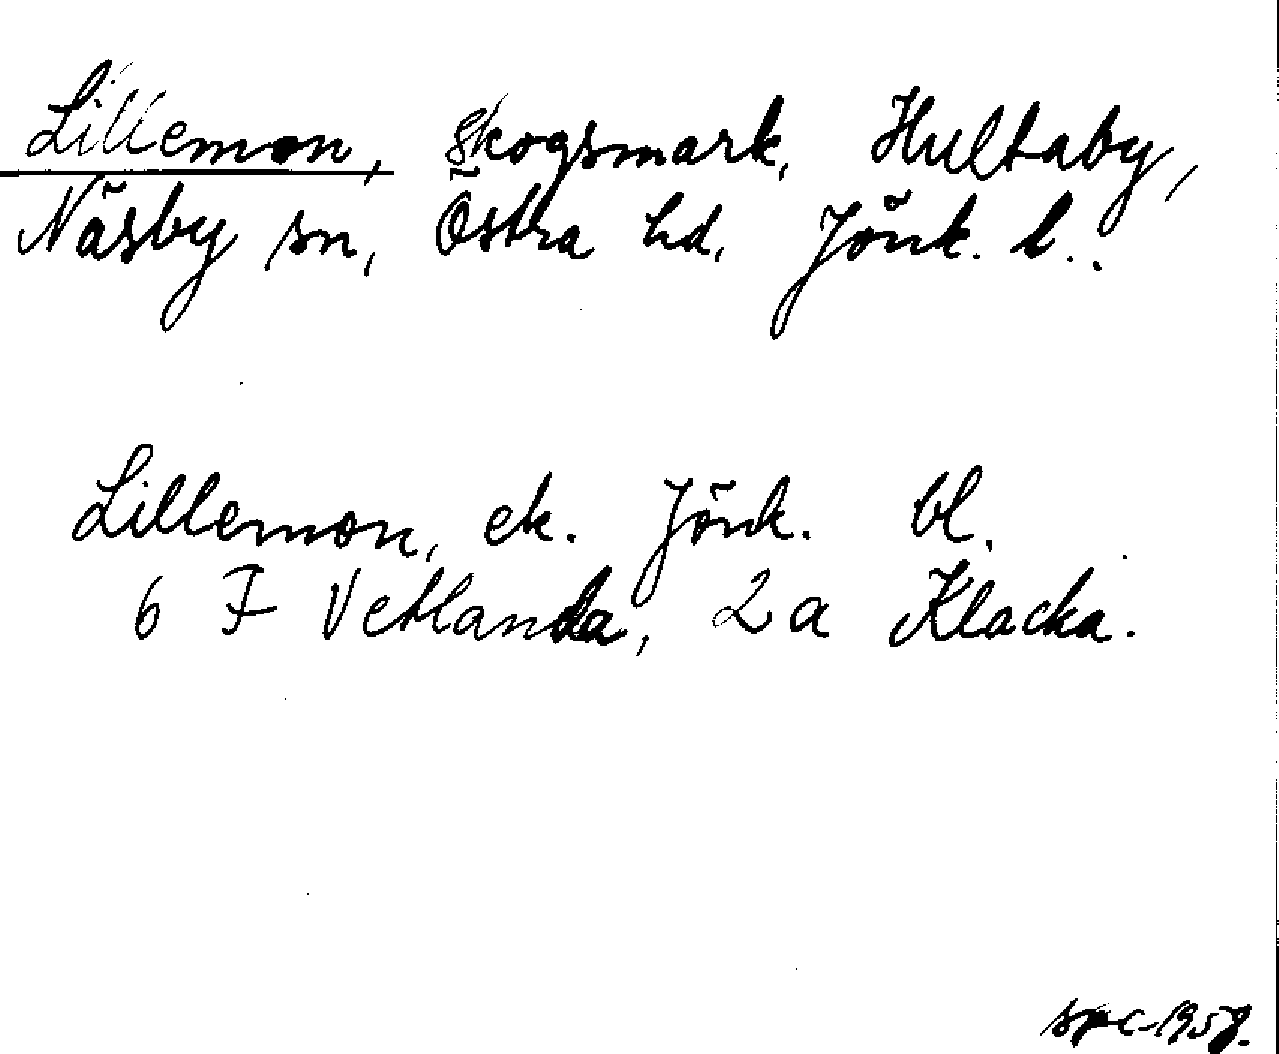 Lillemon, skogsmark, Hultaby,
Näsby sn, Östra hd, Jönk. l..
Lillemon, ek. Jönk. bl.
6 F Vetlanda, 2a Klacka.